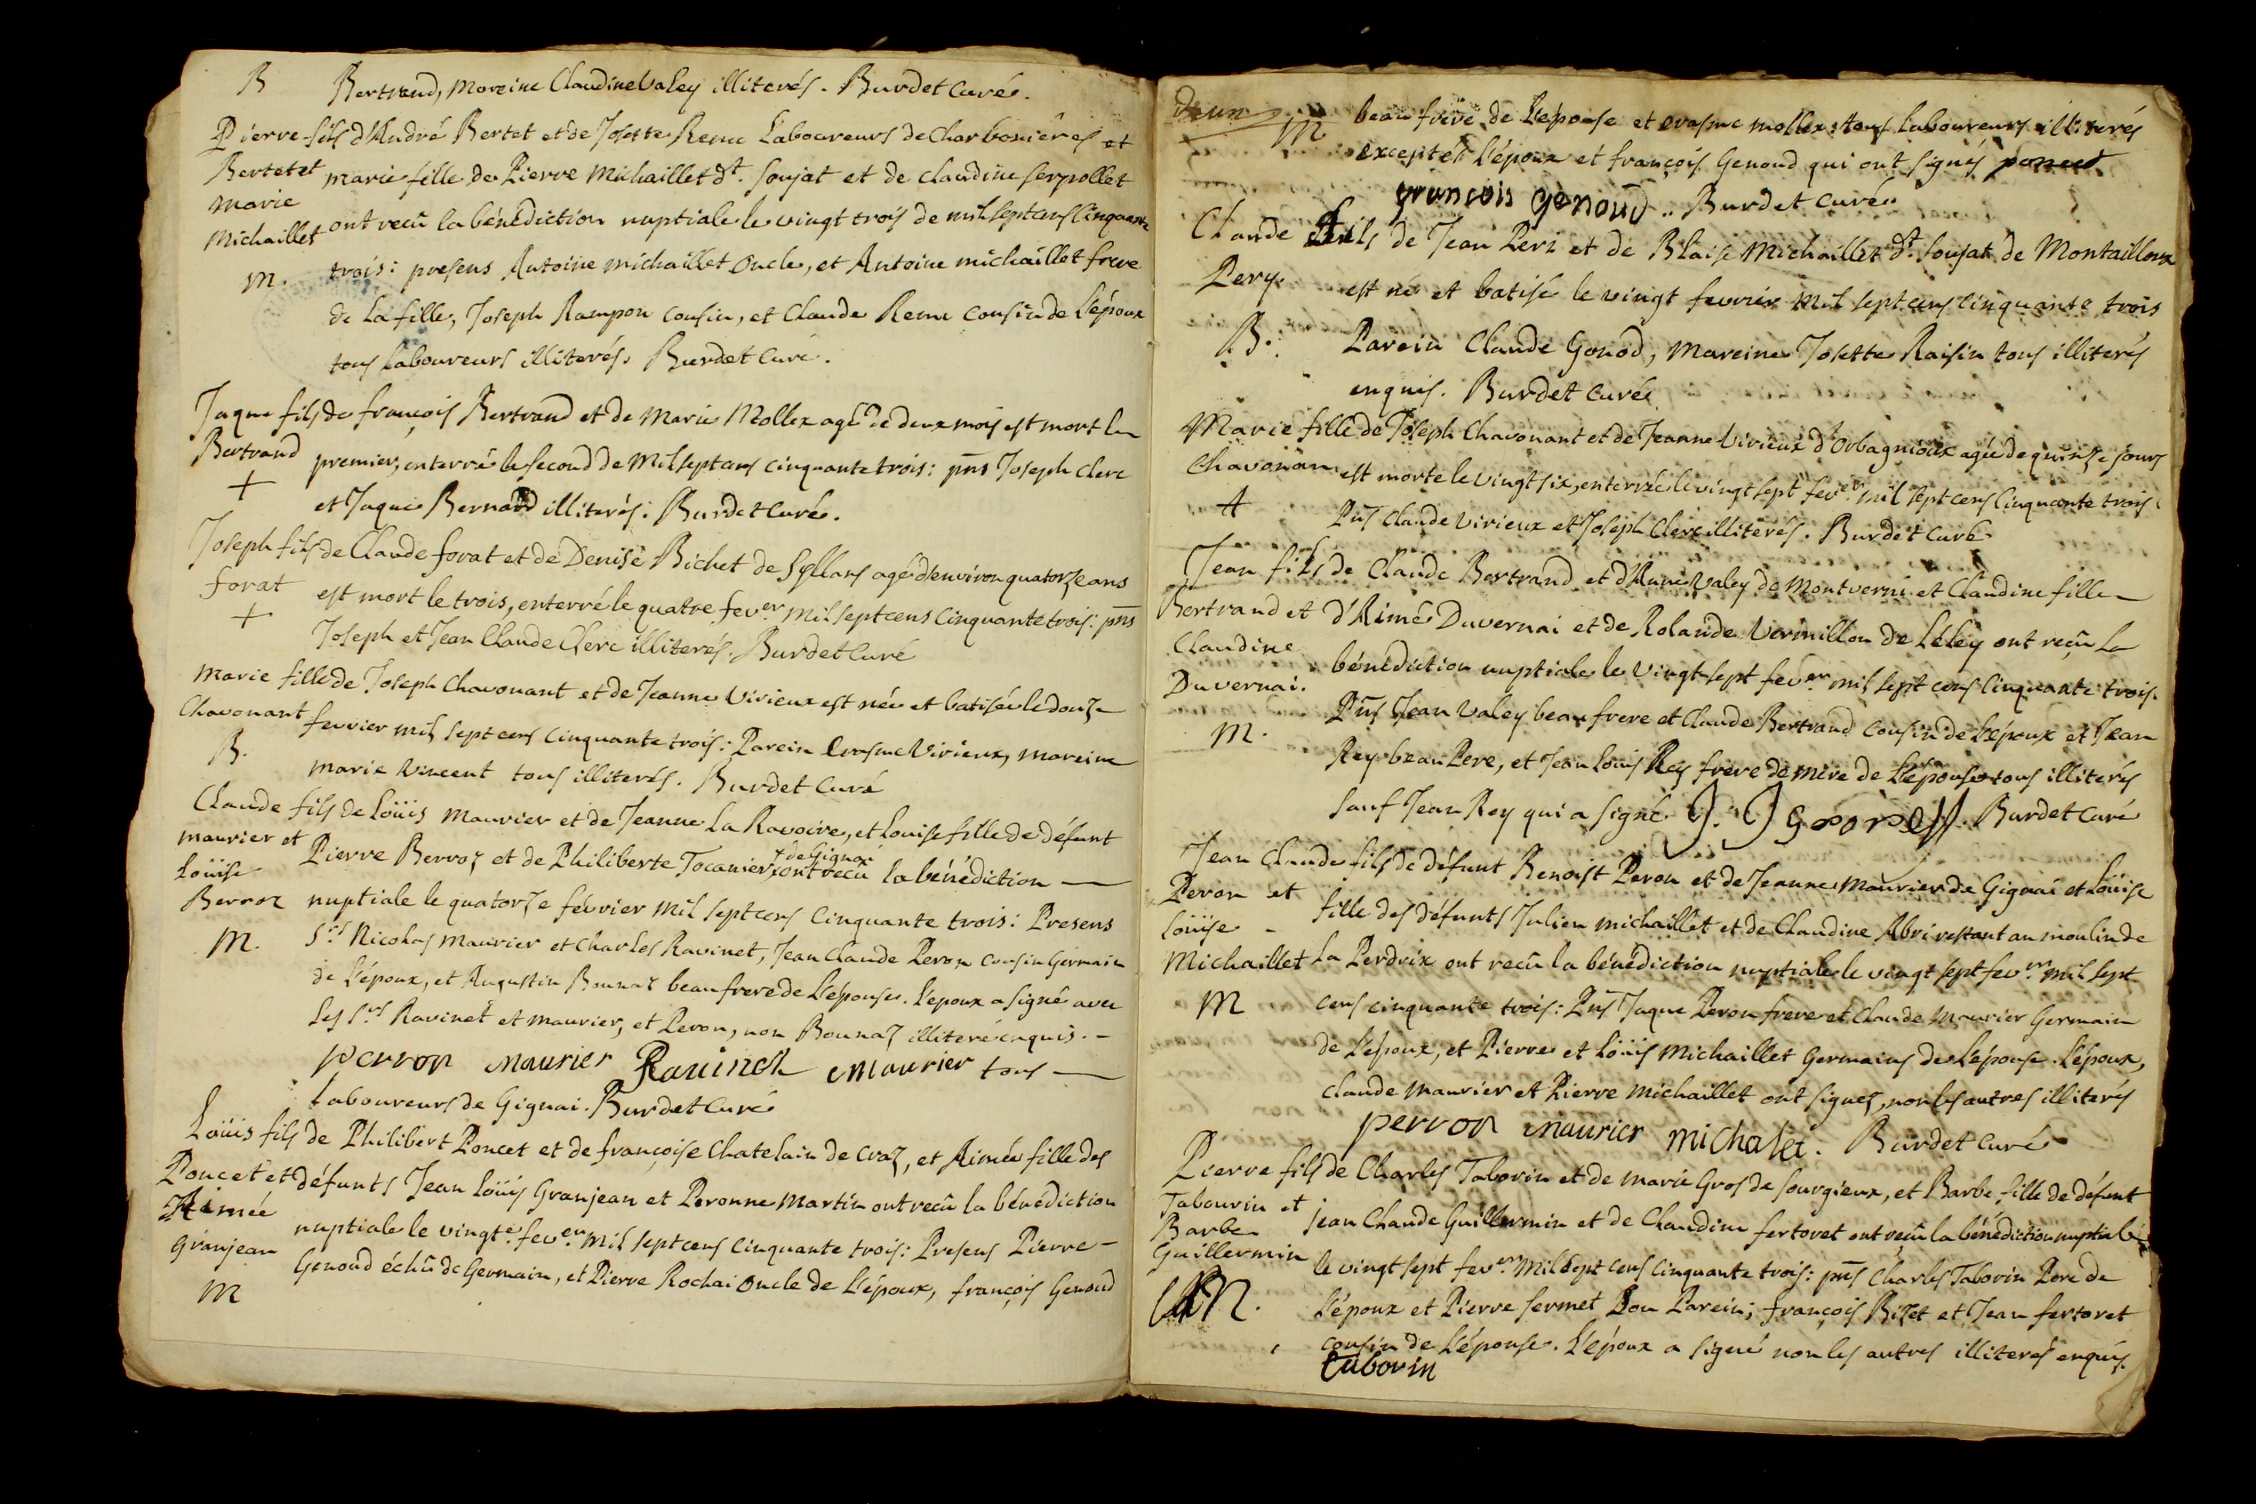 B Bertrand, Moreine Claudine Valey illiterés. Burdet Curé.
Pierre fils d'André Bertet et de Josette Reme Laboureurs de Charbonieres et
Bertet et marie fille de Pierre Michaillet dt. Soujat et de claudine serpollet
Marie
Michaillet ont recû la bénediction nuptiale le vingt trois de mil sept cens cinquante
M. trois: presens Antoine michaillet Oncle, et Antoine michaillet frere
de La fille, Joseph Rampon cousin, et Claude Reme cousin de L'époux
tous Laboureurs illiterés. Burdet Curé.
Jaque fils de françois Bertrand et de Marie Mollex agé de deux mois est mort le
Bertrand premier, enterré le second de Mil sept cens cinquante trois: pns Joseph Clerc
+ et Jaque Bernard illiterés. Burdet Curé.
Joseph fils de Claude forat et de Denise Bichet de Syllans agé d'environ quatorze ans
forat est mort le trois, enterré le quatre fever. Mil sept cens cinquante trois: pns
+ Joseph et Jean Claude Clerc illiterés. Burdet Curé
Marie fille de Joseph Chavonant et de Jeanne Virieux est née et batisée le douze
Chavonant fevrier mil sept cens cinquante trois: Parein Erasme Virieux, moreine
B. marie Vincent tous illiterés. Burdet Curé
Claude fils de Loüis Maurier et de Jeanne La Ravoire, et Louise fille de défunt
maurier et Pierre Berroz et de Philiberte Tocanier + de Gignai ont recû la bénédiction
Loüise
Berroz nuptiale le quatorze février mil sept cens cinquante trois: Presens
M. Srs Nicolas Maurier et Charles Ravinet, Jean Claude Peron cousin Germain
de L'époux, et Augustin Bounaz beaufrere de L'épouse. L'epoux a signé avec
Les Srs Ravinet et maurier, et Peron, non Bounaz illiteré enquis.
perron Maurier Rauinet Maurier tous
Laboureurs de Gignai. Burdet Curé
Loüis fils de Philibert Poncet et de françoise Chatelain de Craz, et Aimée fille des
Poncet et défunts Jean Loüis Granjean et Peronne Martin ont recû la bénédiction
Aimée
Granjean nuptiale le vingte. fever. Mil sept cens cinquante trois: Presens Pierre
M Genoud échû de Germain, et Pierre Rochai Oncle de L'époux, françois Genoud
M beau frere de L'épouse et erasme mollex tous laboureurs illiterés
exceptés L'époux et françois Genoud qui ont signés poncet
francois genoud. Burdet Curé
Claude fils de Jean Peri et de Blaise Michaillet dt. soujat de Montailloux
Pery. est né et batisé le vingt fevrier Mil sept cens cinquante trois
B. Parein Claude Gonod, Mareine Josette Raisin tous illiterés
enquis. Burdet Curé
Marie fille de Joseph Chavonant et de Jeanne Virieux d'Orbagnioux agée de quinze jours
Chavonan est morte le vingt six, enterrée le vingt sept fever mil sept cens cinquante trois.
+ Pns Claude Virieux et Joseph Clerc illiterés. Burdet Curé
Jean fils de Claude Bertrand et d'Anne Valey de Montverni et Claudine fille
Bertrand et d'Aimé Duvernai et de Rolande Vermillon de Léley ont reçû la
Claudine
Duvernai. bénédiction nuptiale le Vingt sept fever mil sept cens cinquante trois.
M. Pns Jean Valey beau frere et Claude Bertrand cousin de L'époux et Jean
Rey beau Pere, et Jean Louis Rey frere de mere de L'épouse tous illiterés
sauf Jean Rey qui a signé. Burdet Curé
Jean Claude fils de défunt Benoist Peron et de Jeanne Maurier de Gignai et Loüise
Peron et fille des défunts Julien michaillet et de Claudine Abri restant au moulin de
Loüise
Michaillet La Perdrix ont recû la bénédiction nuptiale le vingt sept fever mil sept
M cens cinquante trois: Pns Jaque Peron frere et Claude Maurier Germain
de L'époux, et Pierre et Loüis Michaillet Germains de L'épouse. L'époux,
Claude Maurier et Pierre Michaillet ont signez, non les autres illiterés
perron Maurier michalet. Burdet Curé
Pierre fils de Charles Taborin et de marie Gros de sourgieux, et Barbe fille de défunt
Tabourin et jean Claude Guillermin et de Claudine fertoret ont reçû la bénédiction nuptiale
Barbe
Guillermin le vingt sept fever Mil sept cens cinquante trois: pns Charles Taborin Pere de
M. L'époux et Pierre sermet son Parein; françois Bizet et Jean fertoret
cousin de L'épouse. L'époux a signé non les autres illiterés enquis.
taborin